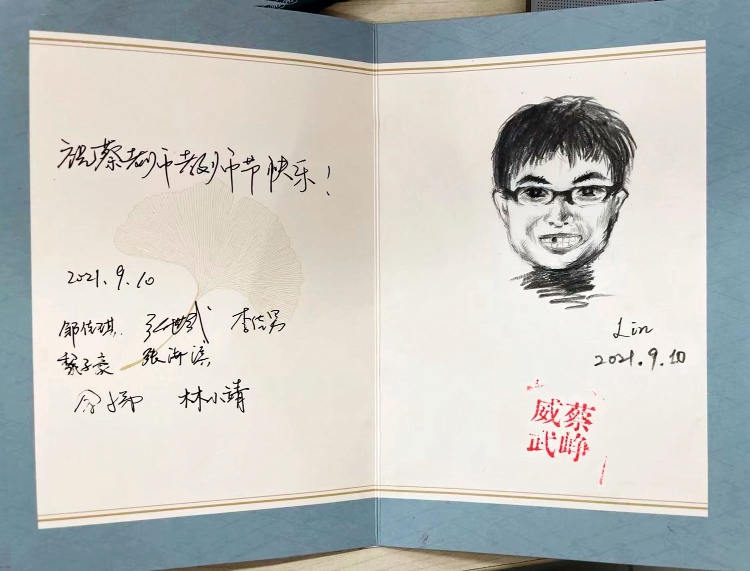 祝蔡老师教师节快乐！
2021.9.10
邹佳琪. 张世武 李先男
魏子豪 张海滨
林小靖
Lin
2021.9.10
蔡峥
威武